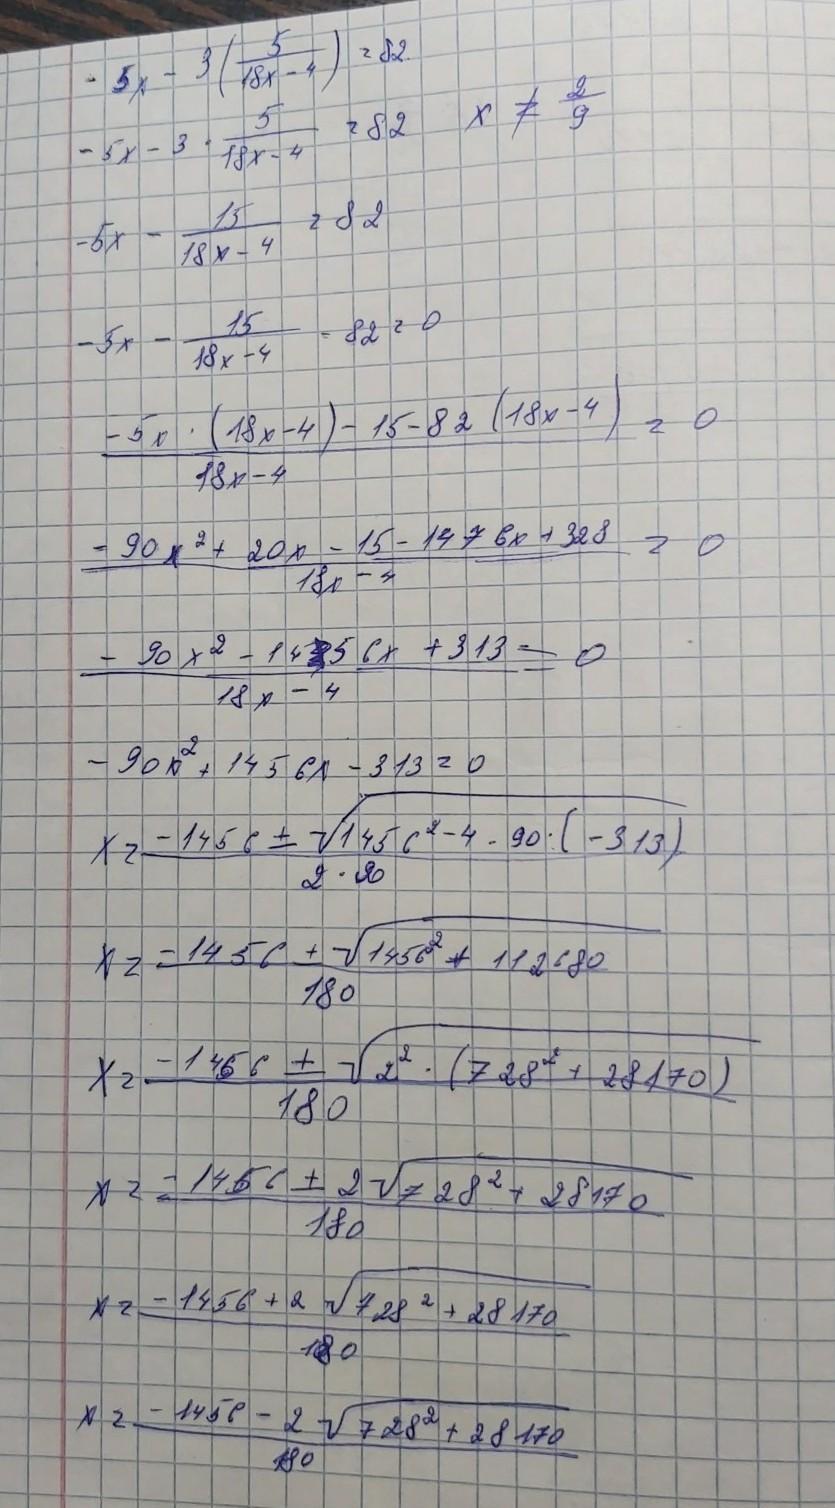 -5x - 3(5/(18x-4)) = 82
-5x - 3 · 5/(18x-4) = 82   x ≠ 2/9
-5x - 15/(18x-4) = 82
-5x - 15/(18x-4) - 82 = 0
(-5x · (18x-4) - 15 - 82(18x-4))/(18x-4) = 0
(-90x² + 20x - 15 - 1476x + 328)/(18x-4) = 0
(-90x² - 1456x + 313)/(18x-4) = 0
-90x² + 1456x - 313 = 0
x = (-1456 ± √(1456² - 4 · 90 · (-313)))/(2 · 90)
x = (-1456 ± √(1456² + 112680))/180
x = (-1456 ± √(2² · (728² + 28170)))/180
x = (-1456 ± 2√(728² + 28170))/180
x = (-1456 + 2√(728² + 28170))/180
x = (-1456 - 2√(728² + 28170))/180